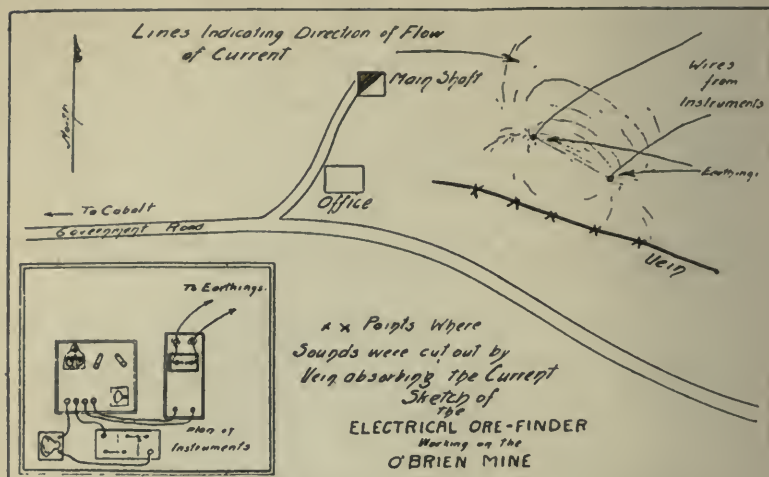 Lines Indicating Direction of Flow
of Current
Main Shaft
Wires
from
Instruments
North
Earthings
Office
To Cobalt
Government Road
Vein
To Earthings.
x x Points Where
Sounds were cut out by
Vein absorbing the Current
Plan of
Instruments
Sketch of
the
ELECTRICAL ORE-FINDER
Working on the
O'BRIEN MINE